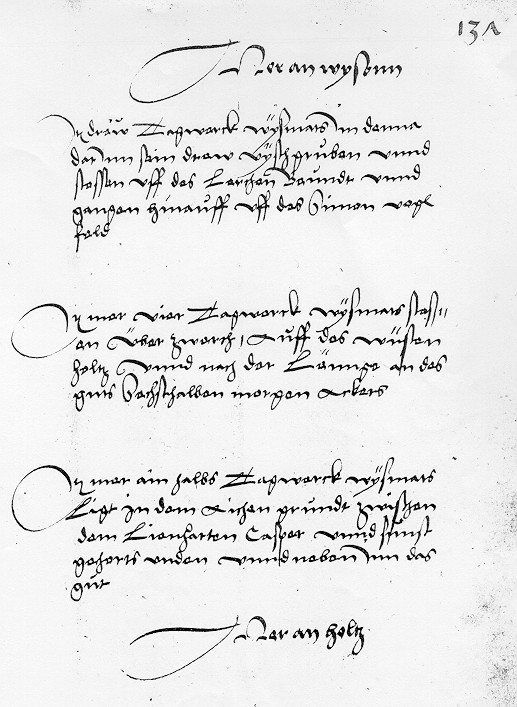 131
Mer an wysonn
It drew Tagwerck wÿsmats in denna
dar Inn sein drew vyschgruben vnnd
stossen vff des Lerchen Baundt vnnd
gangen hinauff vff des Simon vogl
feld
It mer vier Tagwerck wÿsmats stoss=
an Über zwerch, Auff des wüsten
holtz vnnd nach der Lännge an des
guts Sechsthalben morgen Ackers
It mer ain halbs Tagwerck wÿsmats
Ligt in dem Aichen grundt zwischen
dem Lienharten Casper vnnd sunst
gehorts vnden vnnd neben Inn das
gut
Mer an holtz